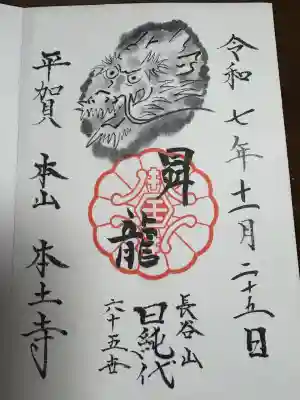 令和七年十一月二十五日
昇
龍
長谷山
日純代
六十五世
平賀 本山 本土寺